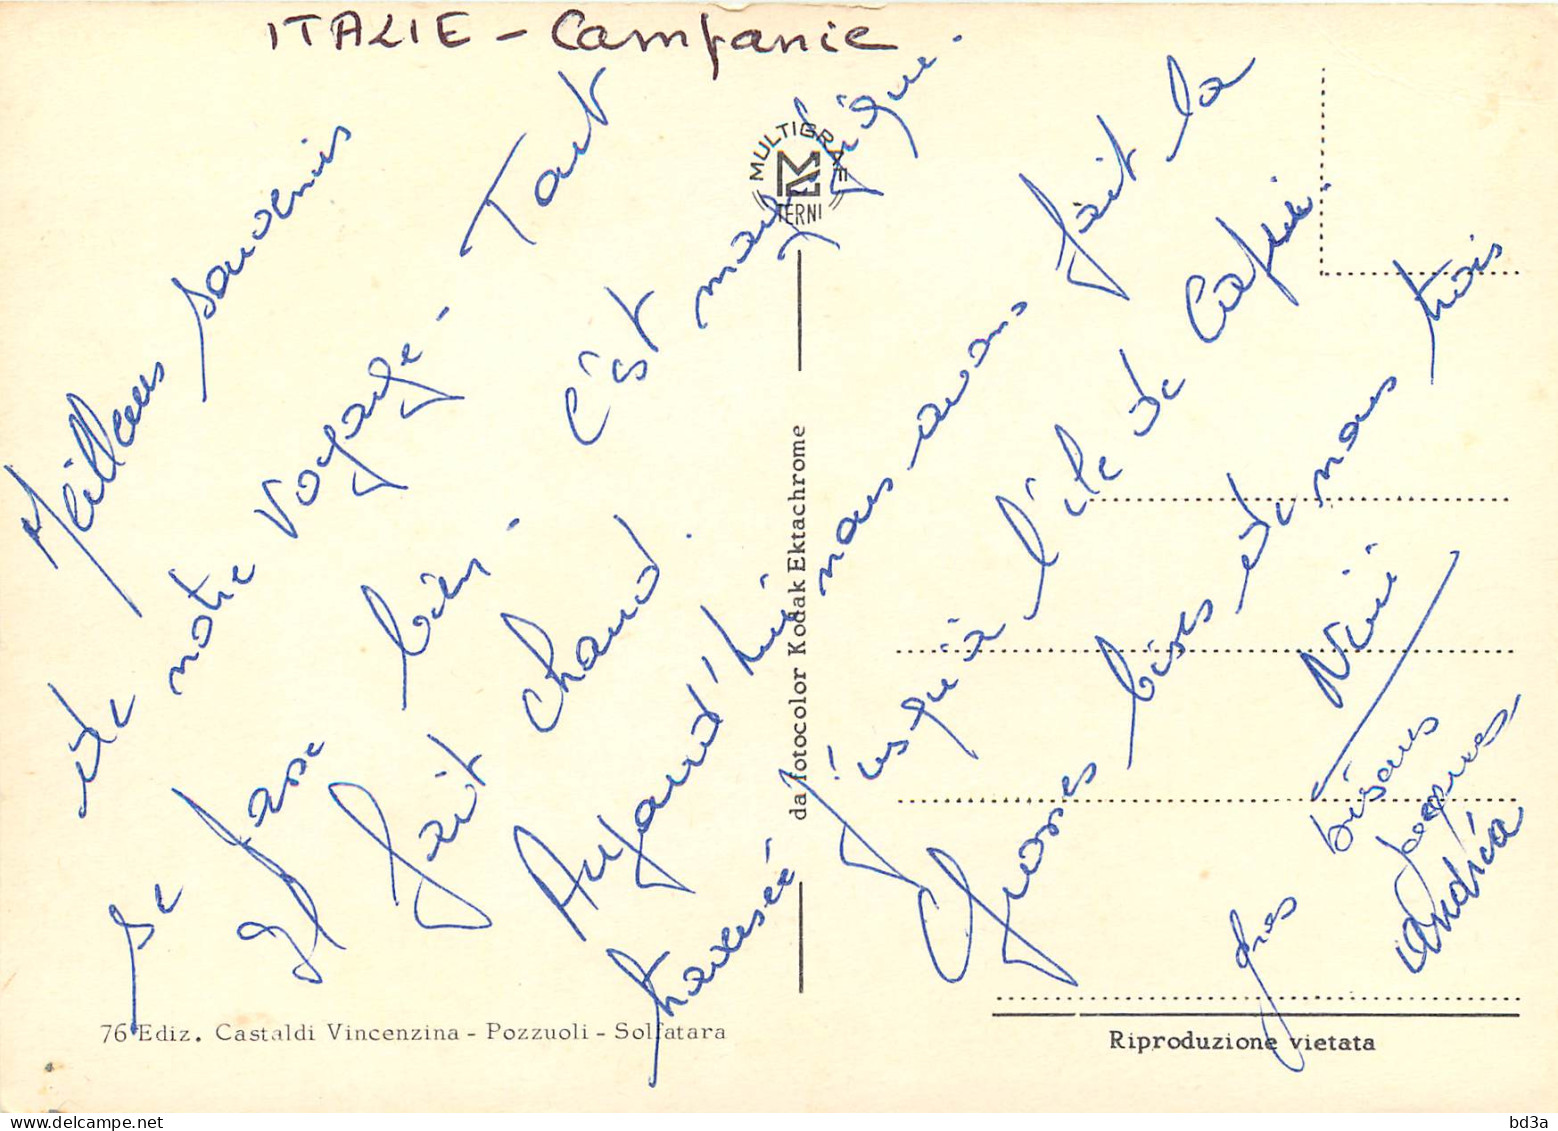 ITALIE - Campanie
Meilleurs souvenirs
de notre voyage - Tout
se passe bien - c'est magnifique.
Il fait chaud.
Aujourd'hui nous avons fait la
traversée jusqu'à l'île de Capri.
Grosses bises de nous trois
Nini
gros bisous
Jacques
Andréa
MULTIGRAF
TERNI
da fotocolor Kodak Ektachrome
76 Ediz. Castaldi Vincenzina - Pozzuoli - Solfatara
Riproduzione vietata
bd3a